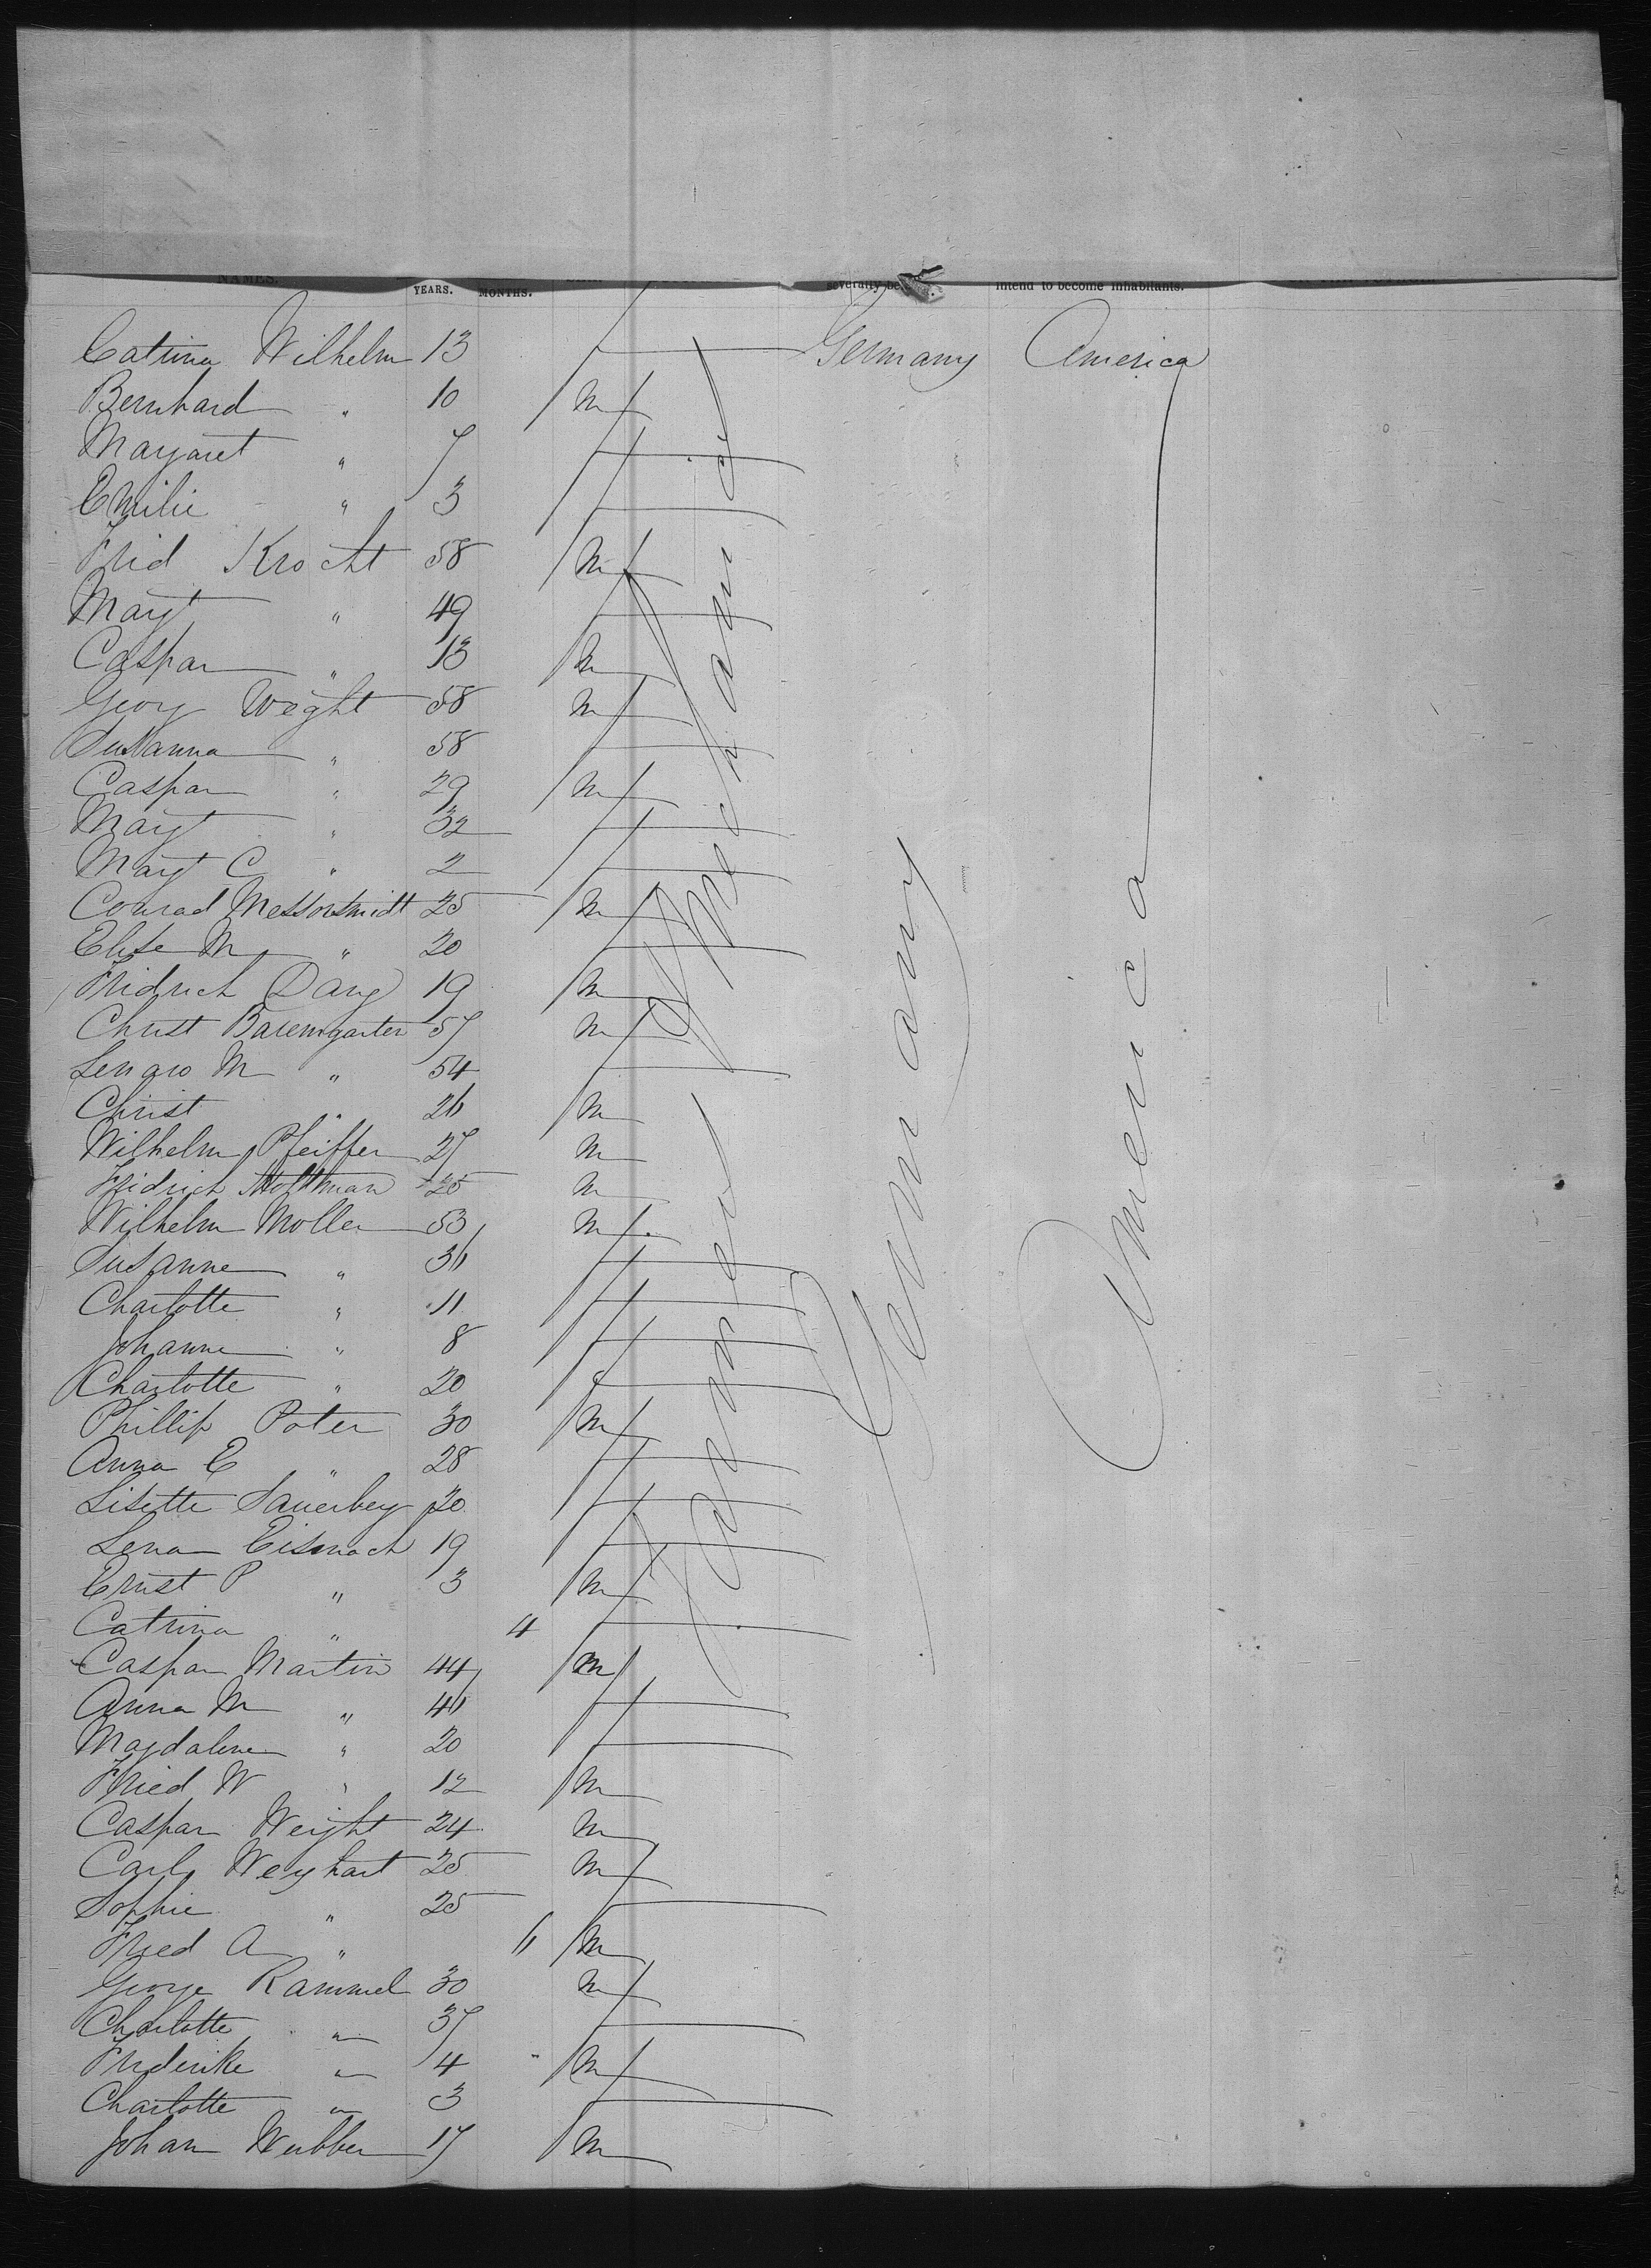 NAMES. YEARS. MONTHS. severally be intend to become inhabitants.
Catrina Wilhelm 13 f Germany America
Bernhard " 10 m
Margaret " 7 f
Emilie " 3 f
Frid Krocht 58 m
Margt " 49 f
Caspar " 13 m
Georg Weght 58 m
Susanna " 58 f
Caspar " 29 m
Margt " 32 f
Margt C " 2 f
Conrad Messorsmidt 25 m
Elise M " 20 f
Fridrich Dang 19 m
Christ Baremgarten 57 m
M " 54 f
Christ " 26 m
Wilhelm Pfeiffer 27 m
Fridrich 25 m
Wilhelm Moller 53 m
Susanne " 36 f
Charlotte " 11 f
Johanne " 8 f
Charlotte " 20 f
Phillip Poter 30 m
Anna E " 28 f
Lisette Sauerbey 20 f
Lena Eisenach 19 f
Ernst P " 3 m
Catrina " 4 f
Caspar Martin 44 m
Anna M " 46 f
Magdalene " 20 f
Fried W " 12 m
Caspar Weight 24 m
Carl Weyhart 25 m
Sophie " 25 f
Fried A " 6 m
George Rammel 30 m
Charlotte " 37 f
Friderike " 4 m
Charlotte " 3 f
Johan Webber 17 m
Farmer & Mechanic
Germany
America